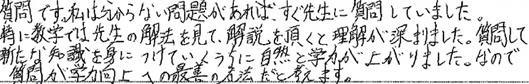 質問です。私は分からない問題があれば、すぐ先生に質問していました。
特に数学では先生の解法を見て、解説を頂くと理解が深まりました。質問して
新たな知識を身につけていくうちに自然と学力が上がりました。なので
質問が学力向上への最善の方法だと考えます。